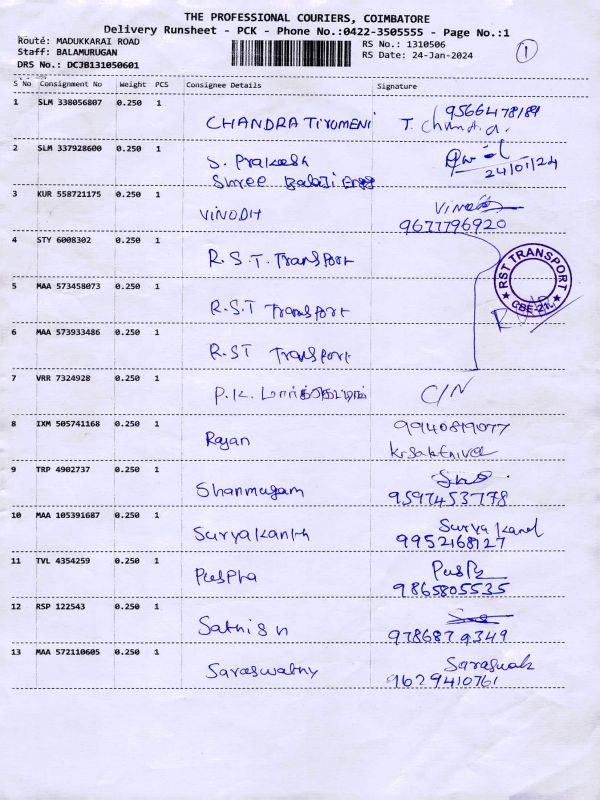 THE PROFESSIONAL COURIERS, COIMBATORE
Delivery Runsheet - PCK - Phone No.:0422-3505555 - Page No.:1
Route: MADUKKARAI ROAD
Staff: BALAMURUGAN
DRS No.: DCJB131050601
RS No.: 1310506
RS Date: 24-Jan-2024
1
S No Consignment No Weight PCS Consignee Details Signature
1 SLM 338056807 0.250 1 CHANDRA TIRUMENI 9566478189
T. Chandra.
2 SLM 337928600 0.250 1 S. Prakash
Shree Balaji Engg 24/01/24
3 KUR 558721175 0.250 1 VINODH Vinoth
9677796920
4 STY 6008302 0.250 1 R.S.T. Transport
RST TRANSPORT
CBE-21.
5 MAA 573458073 0.250 1 R.S.T Transport
6 MAA 573933486 0.250 1 R.ST Transport
7 VRR 7324928 0.250 1 P.K. C/N
8 IXM 505741168 0.250 1 Rajan 9940819077
9 TRP 4902737 0.250 1 Shanmugam
9597453778
10 MAA 105391687 0.250 1 Suryakanth Surya Kand
9952168127
11 TVL 4354259 0.250 1 Puspha
9865805535
12 RSP 122543 0.250 1 Sathish
9786879349
13 MAA 572110605 0.250 1 Saraswathy Saraswath
9629410761